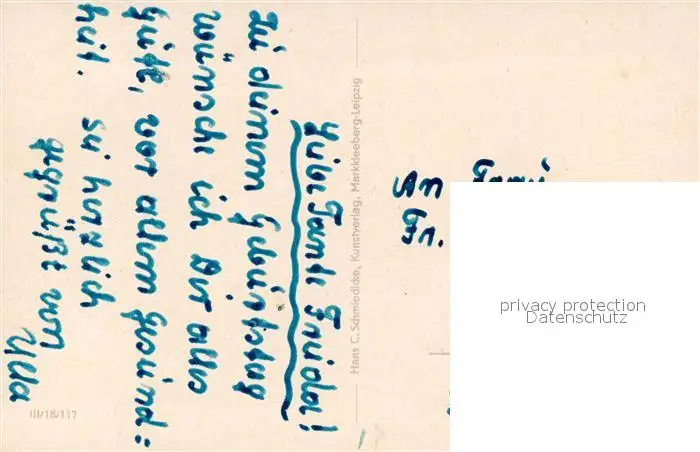 Liebe Tante Frieda!
Zu deinem Geburtstag
wünsche ich Dir alles
Gute, vor allem Gesund=
heit.
sei herzlich
gegrüßt von
Ulla
Hans C. Schmiedicke, Kunstverlag, Markkleeberg-Leipzig
III/18/117
An
Fr.
privacy protection
Datenschutz